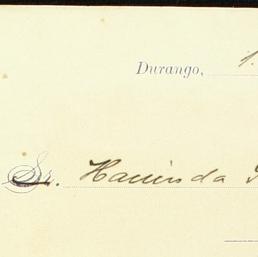 Durango, 1.
Sr. Hacienda